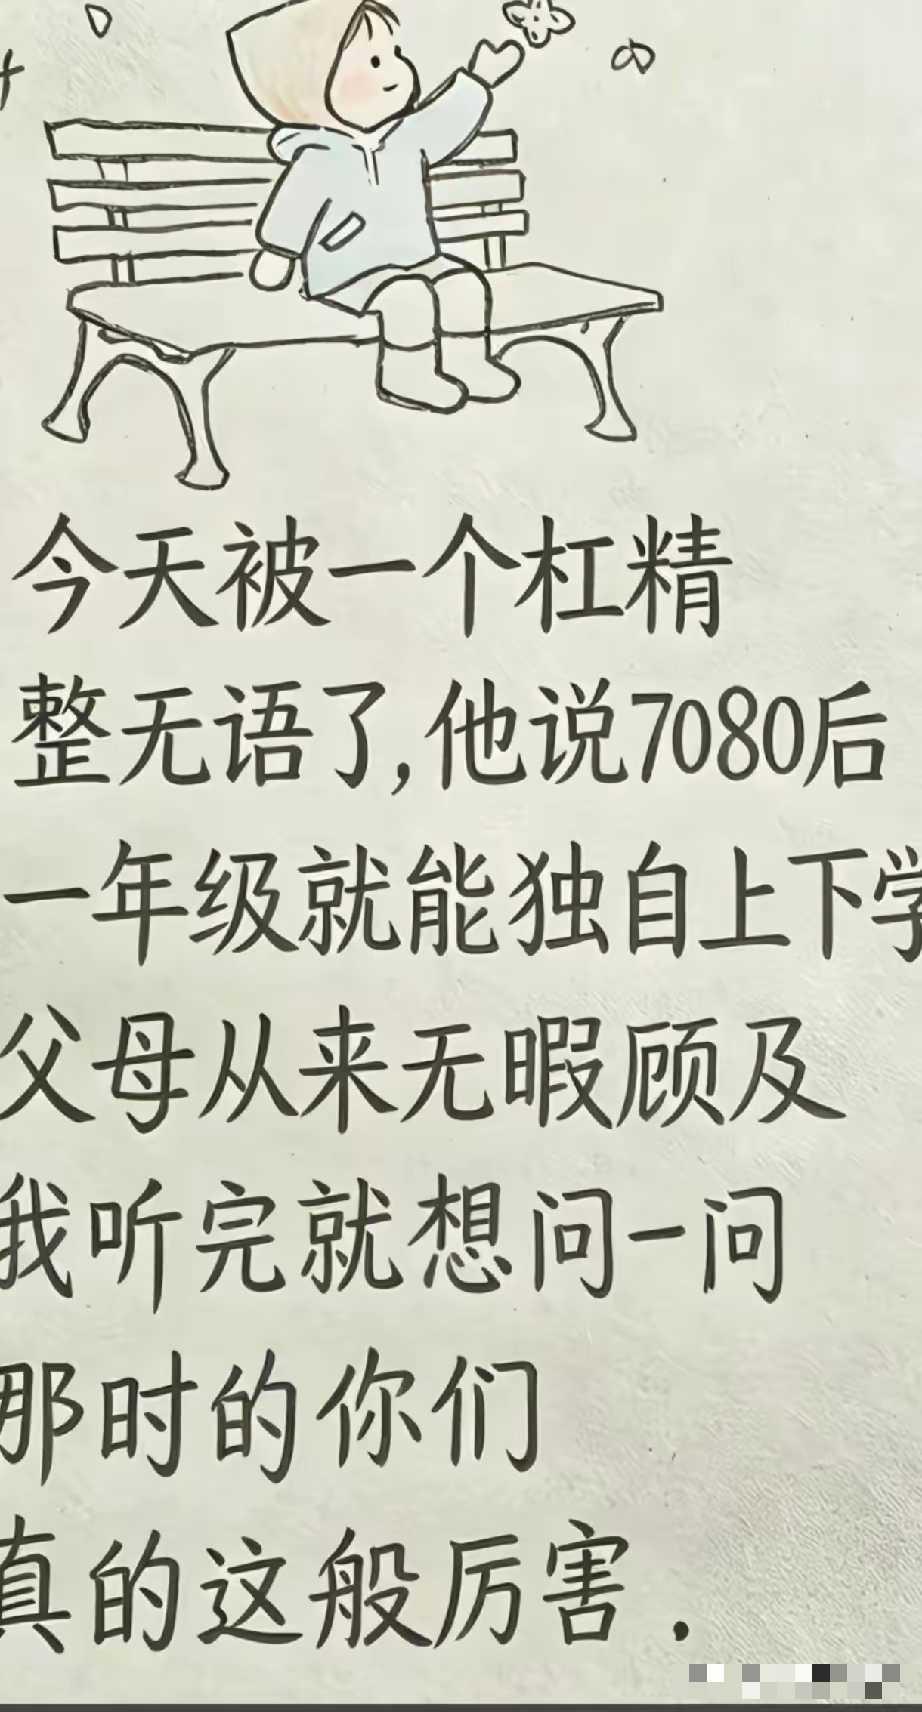 今天被一个杠精
整无语了,他说7080后
一年级就能独自上下学
父母从来无暇顾及
我听完就想问一问
那时的你们
真的这般厉害.